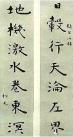 日毂行天沦左界
地機激水卷東溟